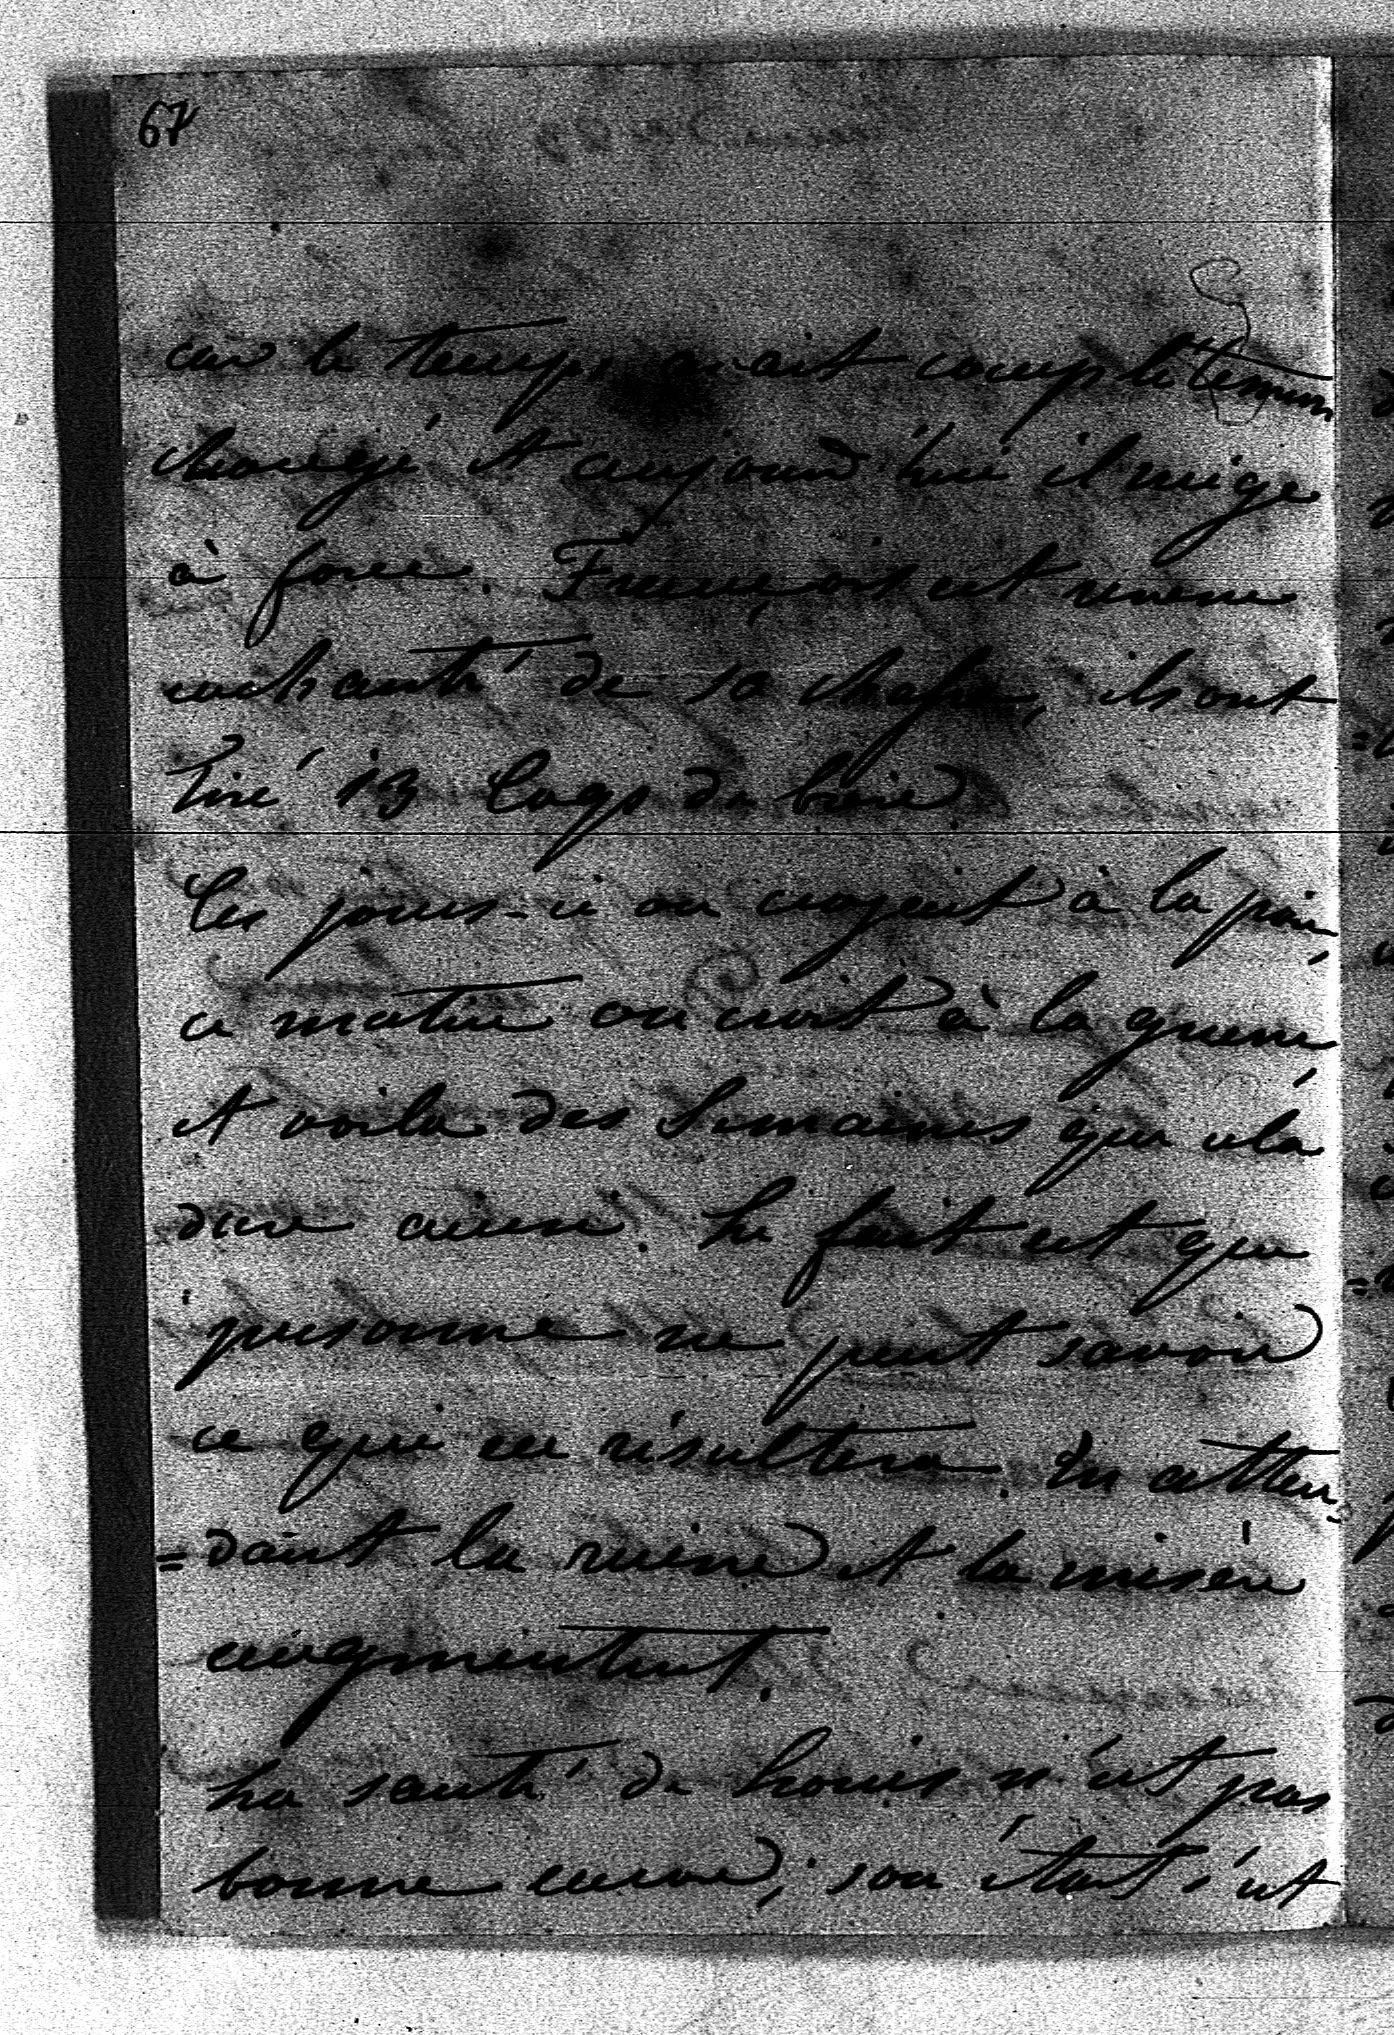 67
car le temps avait complètemen
changé et aujourd'hui il neige
à force. François est revenu
enchanté de sa chasse, ils ont
tiré 13 Coqs de bois.
Ces jours-ci on croyait à la paix,
ce matin on croit à la guerre
et voila des semaines que cela
dure ainsi. Le fait est que
personne ne peut savoir
ce qui en résultera. En atten=
=dant la ruine et la misère
augmentent.
La santé de Louis n'est pas
bonne encore, son état s'est